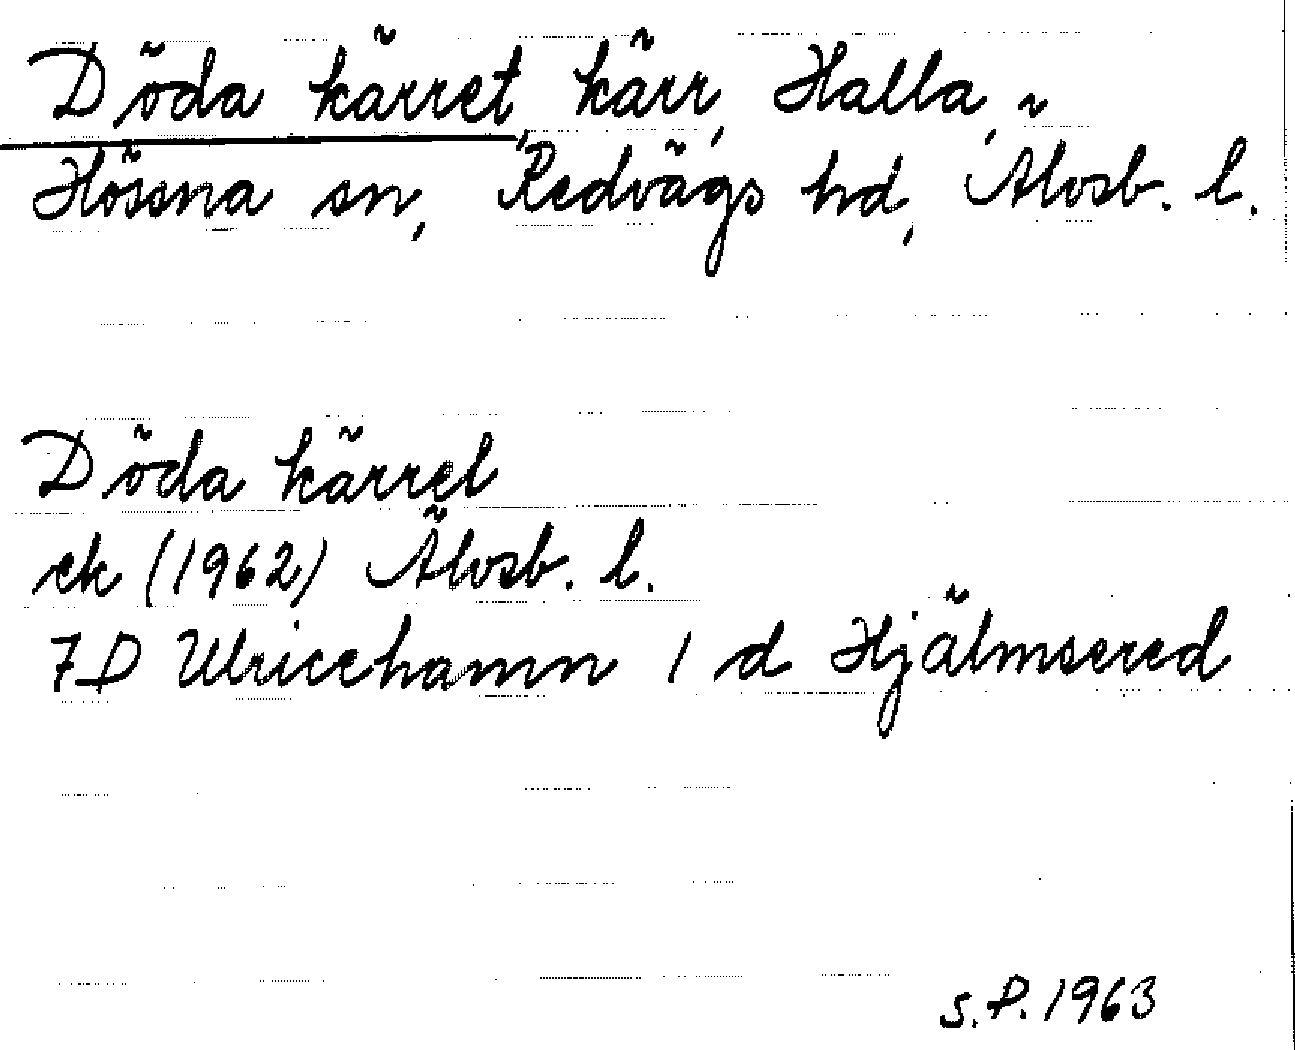 Döda kärret, kärr, Halla,
Hössna sn, Redvägs hd, Älvsb. l.
Döda kärrel
ek (1962) Älvsb. l.
7D Ulricehamn 1 d Hjälmsered
S.P. 1963